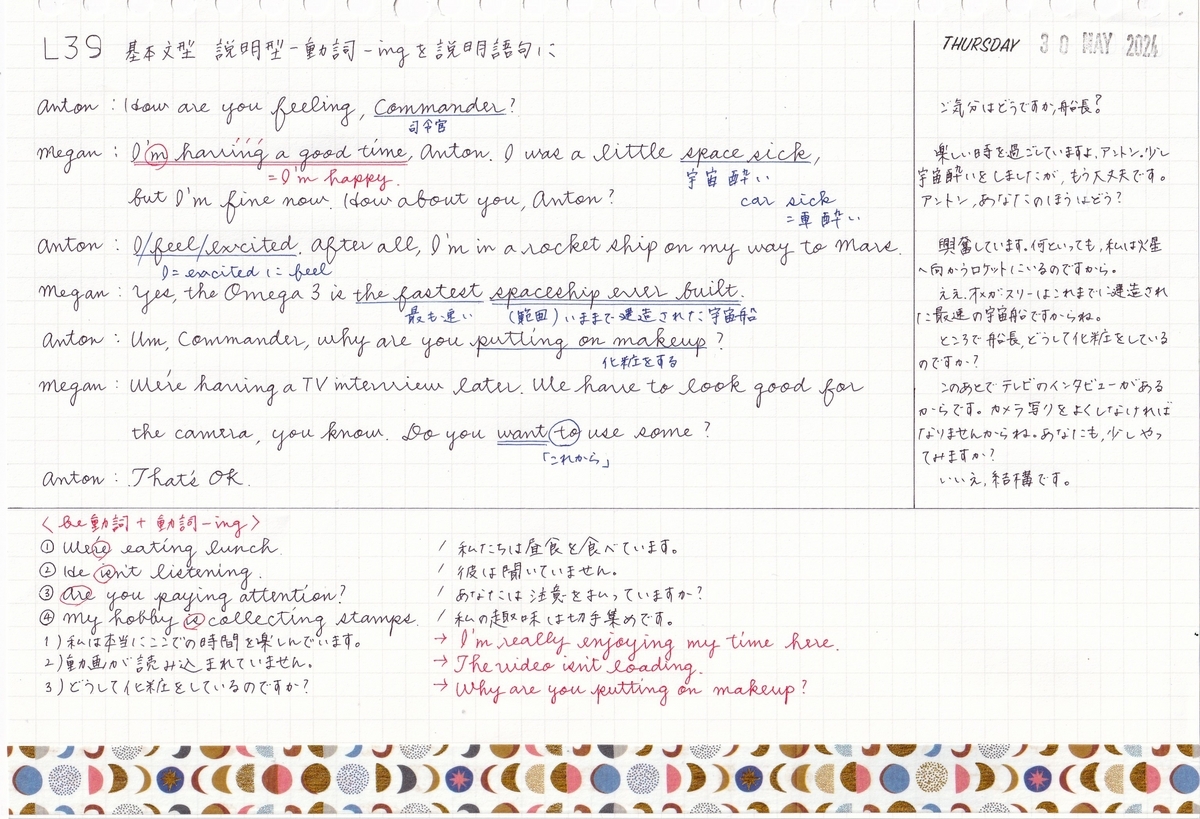 L39 基本文型 説明型-動詞-ingを説明語句に
THURSDAY 30 MAY 2024
Anton : How are you feeling, Commander?
司令官
Megan : I'm having a good time, Anton. I was a little space sick,
=I'm happy.
宇宙酔い
but I'm fine now. How about you, Anton?
car sick
=車酔い
Anton : I/feel/excited. After all, I'm in a rocket ship on my way to Mars.
I=excited に feel
Megan : Yes, the Omega 3 is the fastest spaceship ever built.
最も速い
(範囲)いままで建造された宇宙船
Anton : Um, Commander, why are you putting on makeup?
化粧をする
Megan : We're having a TV interview later. We have to look good for
the camera, you know. Do you want to use some?
「これから」
Anton : That's OK.
ご気分はどうですか,船長?
楽しい時を過ごしていますよ,アントン。少し
宇宙酔いをしましたが,もう大丈夫です。
アントン,あなたのほうはどう?
興奮しています。何といっても,私は火星
へ向かうロケットにいるのですから。
ええ.オメガスリーはこれまでに建造され
た最速の宇宙船ですからね。
ところで船長,どうして化粧をしている
のですか?
このあとでテレビのインタビューがある
からです。カメラ写りをよくしなければ
なりませんからね。あなたも,少しやっ
てみますか?
いいえ,結構です。
〈be動詞+動詞-ing〉
① We're eating lunch. / 私たちは昼食を食べています。
② He isn't listening. / 彼は聞いていません。
③ Are you paying attention? / あなたは注意をはらっていますか?
④ My hobby is collecting stamps. / 私の趣味は切手集めです。
1)私は本当にここでの時間を楽しんでいます。 → I'm really enjoying my time here.
2)動画が読み込まれていません。 → The video isn't loading.
3)どうして化粧をしているのですか? → Why are you putting on makeup?